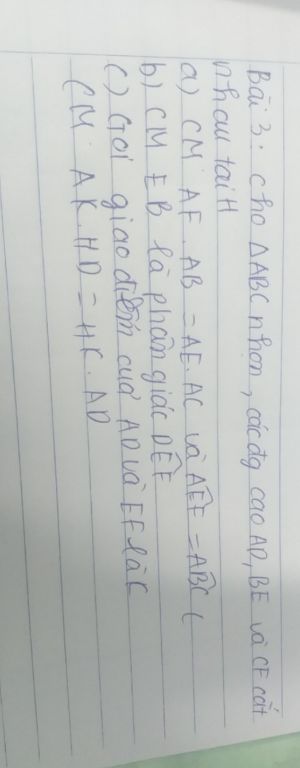 Bài 3: cho ΔABC nhọn, các đg cao AD, BE và CF cắt
nhau tại H
a) CM AF.AB = AE.AC và AÊF = AB̂C (
b) CM EB là phân giác DÊF
c) Gọi giao điểm của AD và EF là K
CM AK.HD = HK.AD